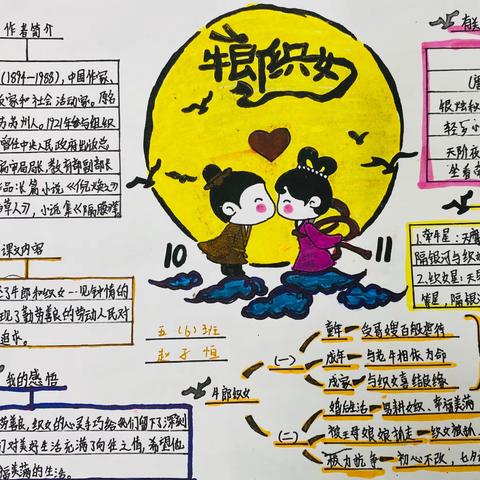 作者简介
(1894-1988),中国作家、
家和社会活动家。原名
苏苏州人。1921年参与组织
中央人民政府出版总
局局长、教育部副部长
品:长篇小说《倪焕之》
草人》,小说集《隔膜》
课文内容
了牛郎和织女一见钟情的
现了勤劳善良的劳动人民对
追求。
我的感悟
劳善良、织女的心灵手巧给我们留下了深刻
们对美好生活充满了向往之情,希望他
福美满的生活。
牛郎织女
10
11
五(6)班
赵子恒
有关
银烛秋
轻罗小
天阶夜
坐看牵
1.牵牛星:天鹰
隔银河与织女
2.织女星:天琴
牛郎织女
(一)
童年 受哥嫂百般虐待
成年 与老牛相依为命
成家 与织女喜结良缘
(二)
婚后生活 男耕女织、幸福美满
被王母娘娘抓走 织女被抓
极力抗争 初心不改,七夕